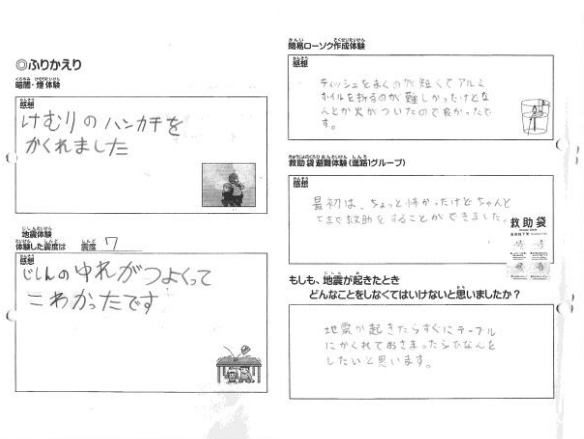 ◎ふりかえり
暗闇・煙体験
感想
けむりのハンカチを
かくれました
地震体験
体験した震度は 震度 7
感想
じしんのゆれがつよくって
こわかったです
簡易ローソク作成体験
感想
ティッシュをまくのが短くてアルミ
ホイルを折るのが難しかったけどな
んとか火がついたので良かったで
す。
救助袋避難体験(進路1グループ)
感想
最初は、ちょっと怖かったけどちゃんと
救助をすることができました。
救助袋
もしも、地震が起きたとき
どんなことをしなくてはいけないと思いましたか？
地震が起きたらすぐにテーブル
にかくれておさまったら
したいと思います。